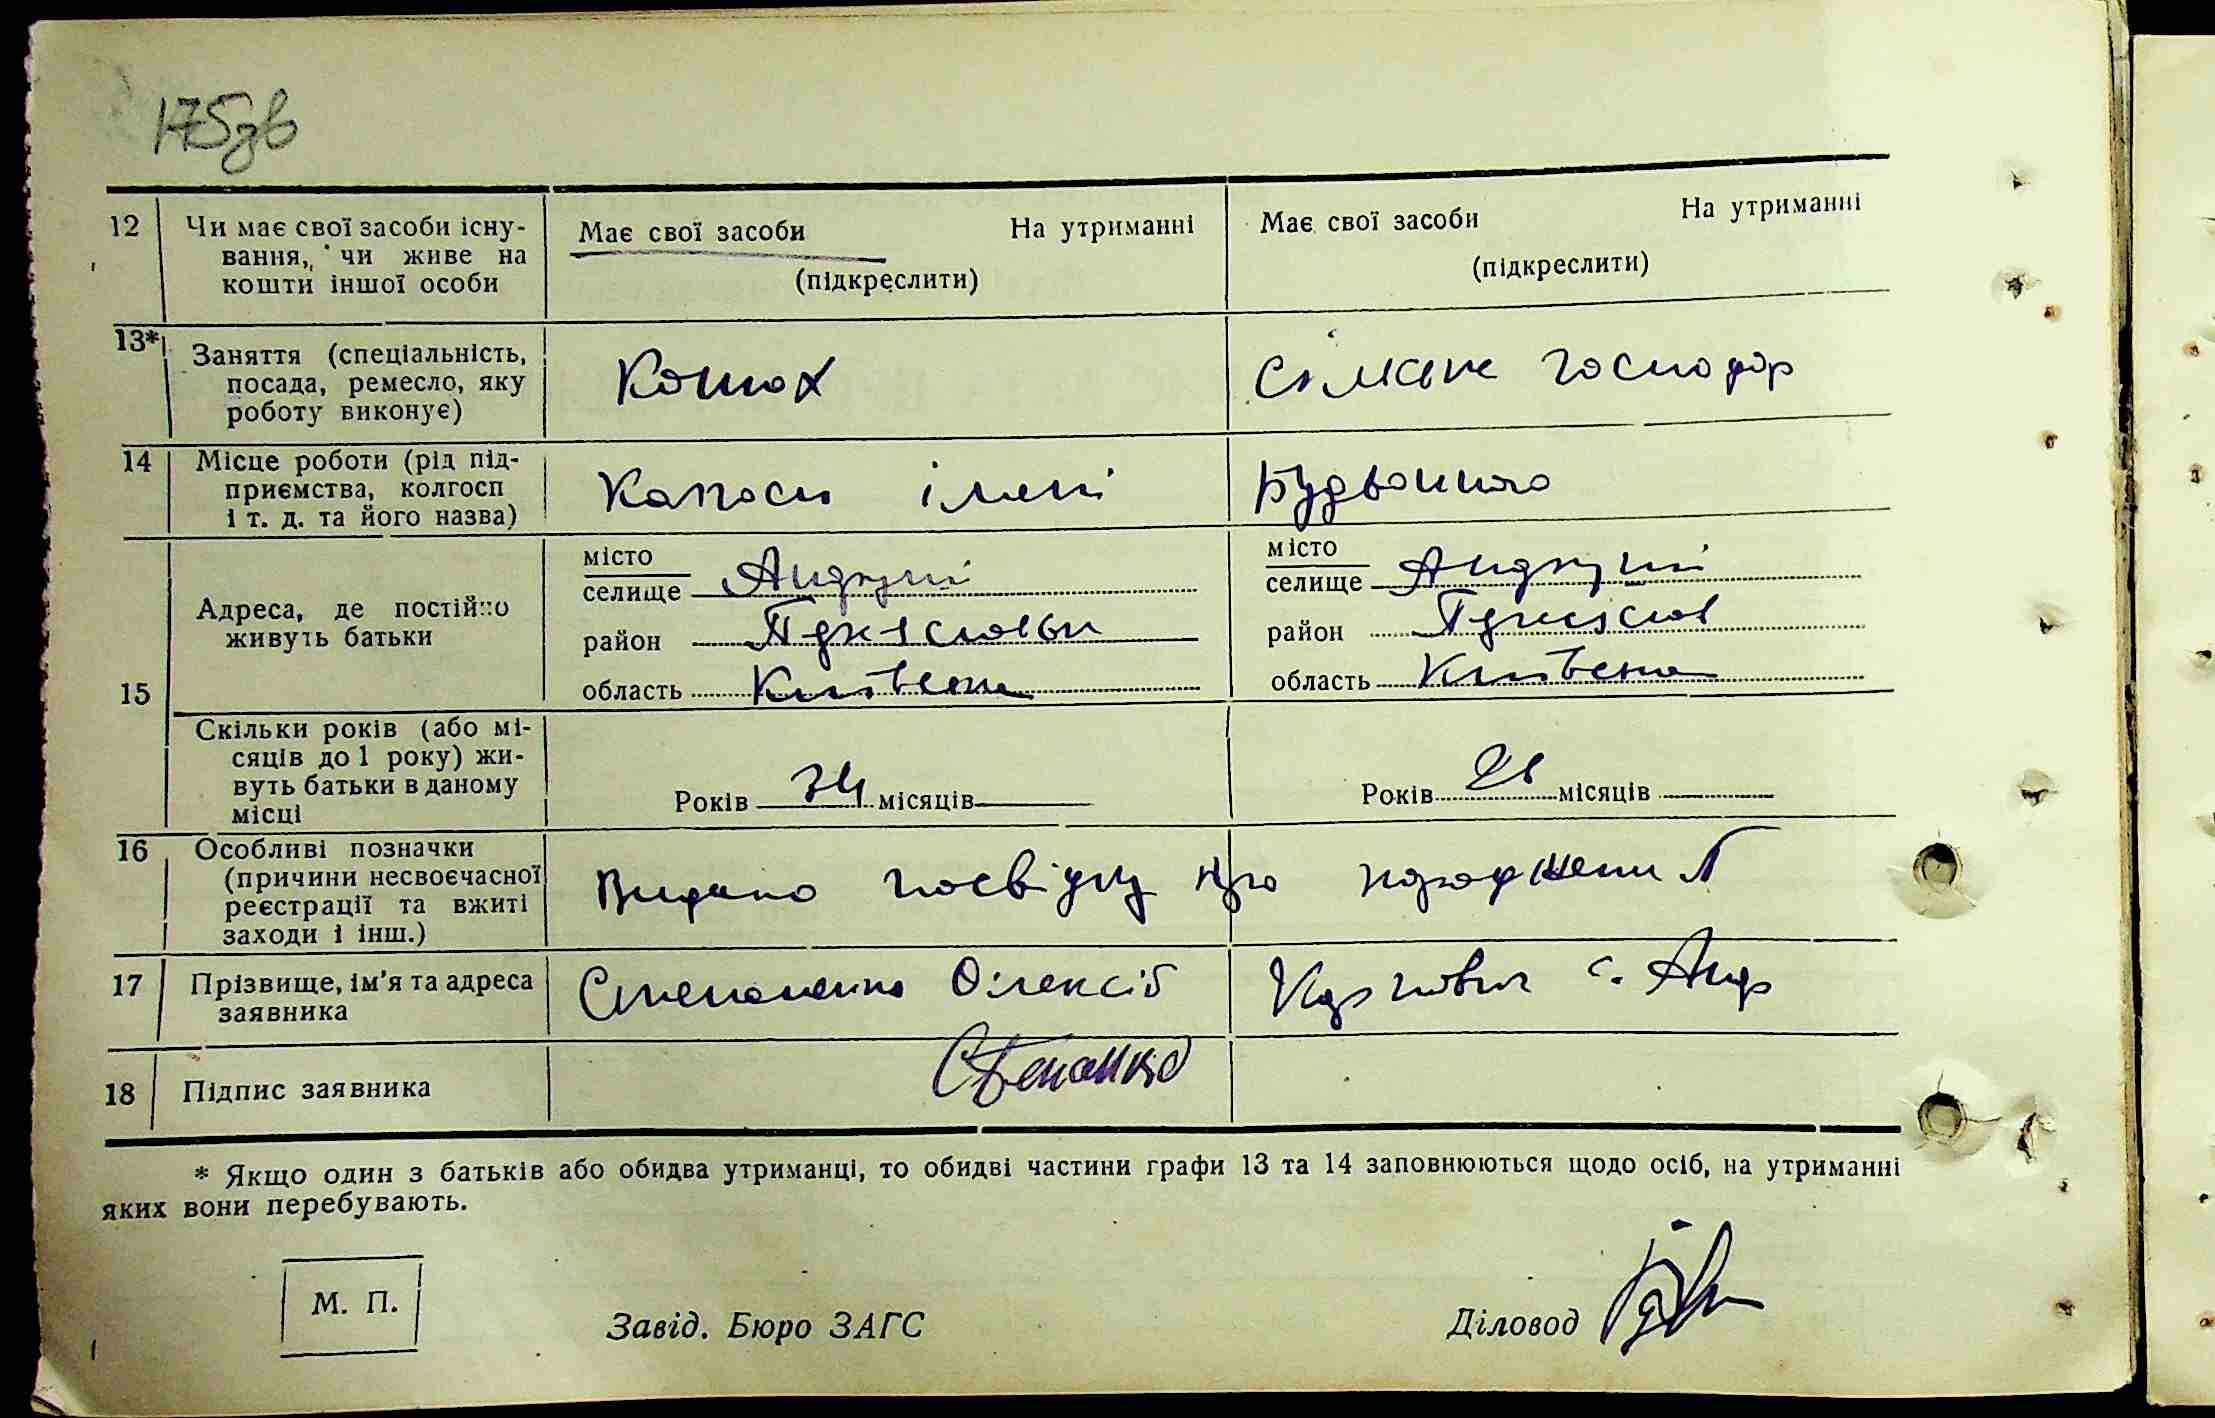 175зв
12 Чи має свої засоби існу- Має свої засоби На утриманні Має свої засоби На утриманні
вання, чи живе на (підкреслити) (підкреслити)
кошти іншої особи
13* Заняття (спеціальність, Конюх Сільське господар
посада, ремесло, яку
роботу виконує)
14 Місце роботи (рід під- імені
приємства, колгосп
і т. д. та його назва)
15 Адреса, де постійно
живуть батьки
місто місто
селище Андруші селище Андруші
район район
область Київська область Київська
Скільки років (або мі-
сяців до 1 року) жи-
вуть батьки в даному
місці
Років 34 місяців Років місяців
16 Особливі позначки Видано посвідку про народження
(причини несвоєчасної
реєстрації та вжиті
заходи і інш.)
17 Прізвище, ім'я та адреса Степаненко Олексій Карпович с. Андр
заявника
18 Підпис заявника Степаненко
* Якщо один з батьків або обидва утриманці, то обидві частини графи 13 та 14 заповнюються щодо осіб, на утриманні
яких вони перебувають.
М. П.
Завід. Бюро ЗАГС Діловод